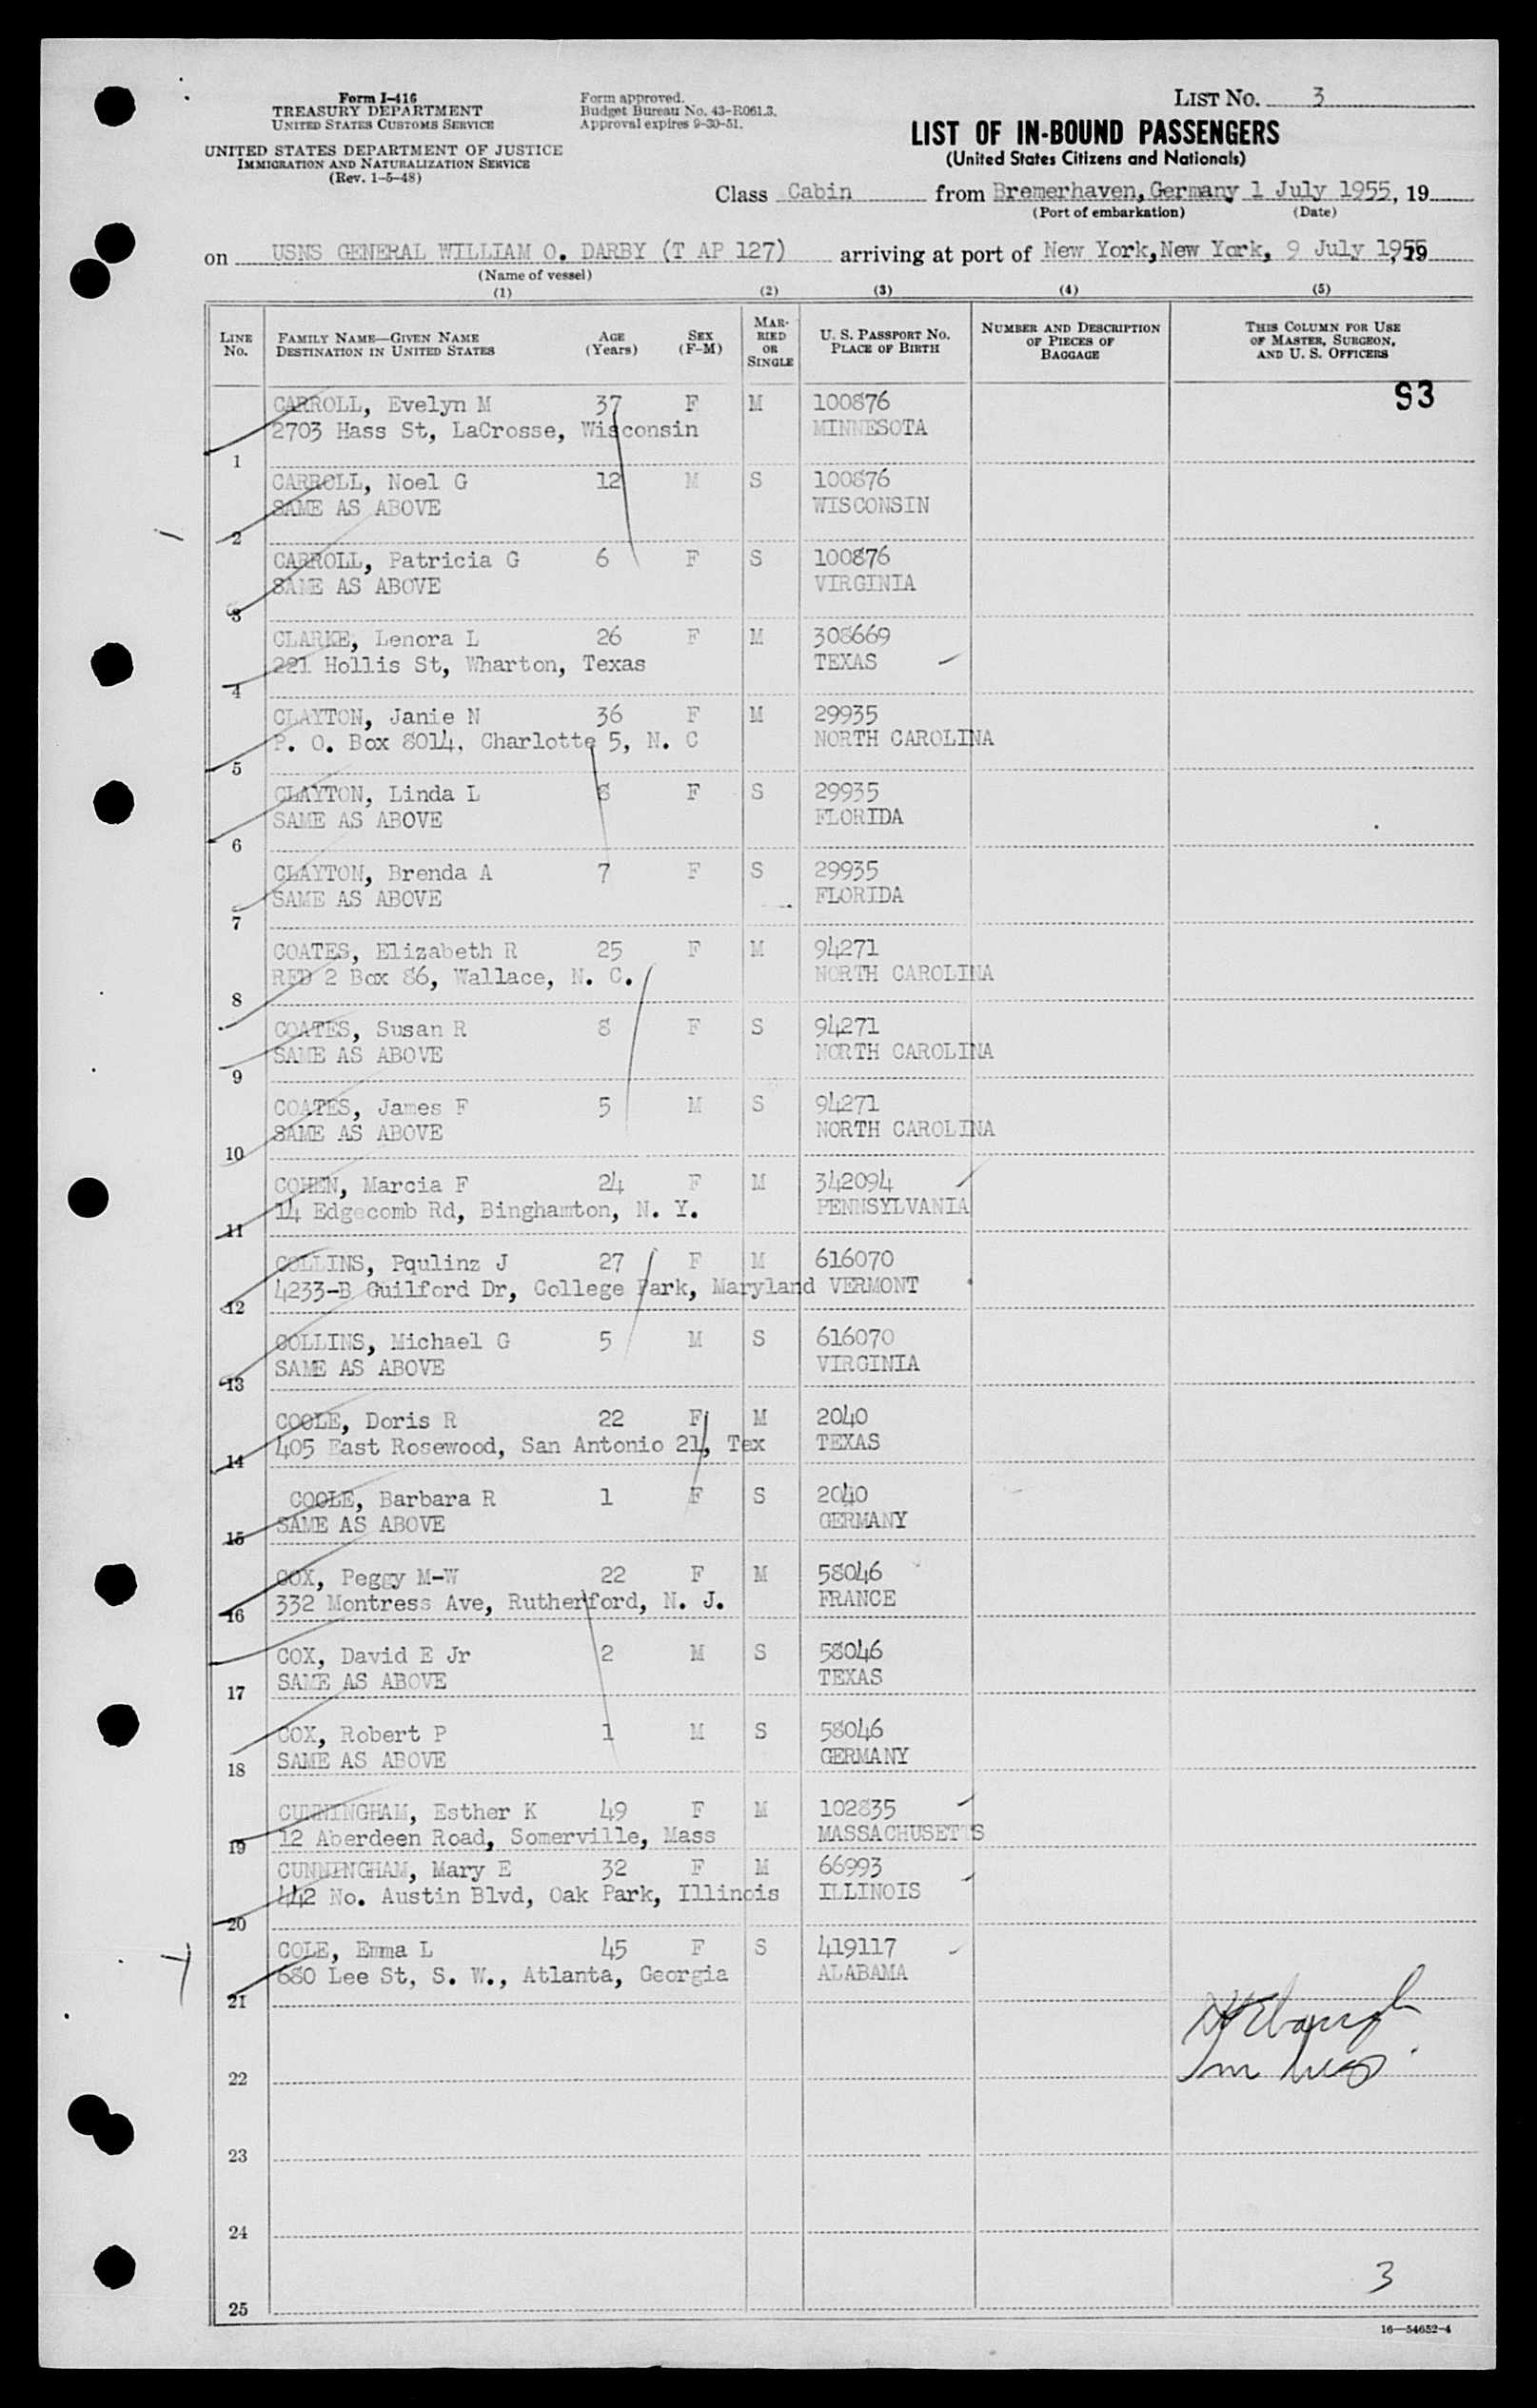 Form I-416
TREASURY DEPARTMENT
UNITED STATES CUSTOMS SERVICE
UNITED STATES DEPARTMENT OF JUSTICE
IMMIGRATION AND NATURALIZATION SERVICE
(Rev. 1-5-48)
Form approved.
Budget Bureau No. 43-R061.3.
Approval expires 9-30-51.
LIST NO. 3
LIST OF IN-BOUND PASSENGERS
(United States Citizens and Nationals)
Class Cabin from Bremerhaven, Germany 1 July 1955, 19
(Port of embarkation) (Date)
on USNS GENERAL WILLIAM O. DARBY (T AP 127) arriving at port of New York, New York, 9 July 1955, 19
(Name of vessel)
(1) (2) (3) (4) (5)
LINE No. FAMILY NAME—GIVEN NAME DESTINATION IN UNITED STATES AGE (Years) SEX (F-M) MARRIED OR SINGLE U. S. PASSPORT NO. PLACE OF BIRTH NUMBER AND DESCRIPTION OF PIECES OF BAGGAGE THIS COLUMN FOR USE OF MASTER, SURGEON, AND U. S. OFFICERS
93
CARROLL, Evelyn M 37 F M 100876
2703 Hass St, LaCrosse, Wisconsin MINNESOTA
1
CARROLL, Noel G 12 M S 100876
SAME AS ABOVE WISCONSIN
2
CARROLL, Patricia G 6 F S 100876
SAME AS ABOVE VIRGINIA
3
CLARKE, Lenora L 26 F M 308669
221 Hollis St, Wharton, Texas TEXAS
4
CLAYTON, Janie N 36 F M 29935
P. O. Box 8014, Charlotte 5, N. C NORTH CAROLINA
5
CLAYTON, Linda L 8 F S 29935
SAME AS ABOVE FLORIDA
6
CLAYTON, Brenda A 7 F S 29935
SAME AS ABOVE FLORIDA
7
COATES, Elizabeth R 25 F M 94271
RFD 2 Box 86, Wallace, N. C. NORTH CAROLINA
8
COATES, Susan R 8 F S 94271
SAME AS ABOVE NORTH CAROLINA
9
COATES, James F 5 M S 94271
SAME AS ABOVE NORTH CAROLINA
10
COHEN, Marcia F 24 F M 342094
14 Edgecomb Rd, Binghamton, N. Y. PENNSYLVANIA
11
COLLINS, Pqulinz J 27 F M 616070
4233-B Guilford Dr, College Park, Maryland VERMONT
12
COLLINS, Michael G 5 M S 616070
SAME AS ABOVE VIRGINIA
13
COOLE, Doris R 22 F M 2040
405 East Rosewood, San Antonio 21, Tex TEXAS
14
COOLE, Barbara R 1 F S 2040
SAME AS ABOVE GERMANY
15
COX, Peggy M-W 22 F M 58046
332 Montress Ave, Rutherford, N. J. FRANCE
16
COX, David E Jr 2 M S 58046
SAME AS ABOVE TEXAS
17
COX, Robert P 1 M S 58046
SAME AS ABOVE GERMANY
18
CUNNINGHAM, Esther K 49 F M 102835
12 Aberdeen Road, Somerville, Mass MASSACHUSETTS
19
CUNNINGHAM, Mary E 32 F M 66993
442 No. Austin Blvd, Oak Park, Illinois ILLINOIS
20
COLE, Emma L 45 F S 419117
680 Lee St, S. W., Atlanta, Georgia ALABAMA
21
22
23
24
3
25
16—54652-4